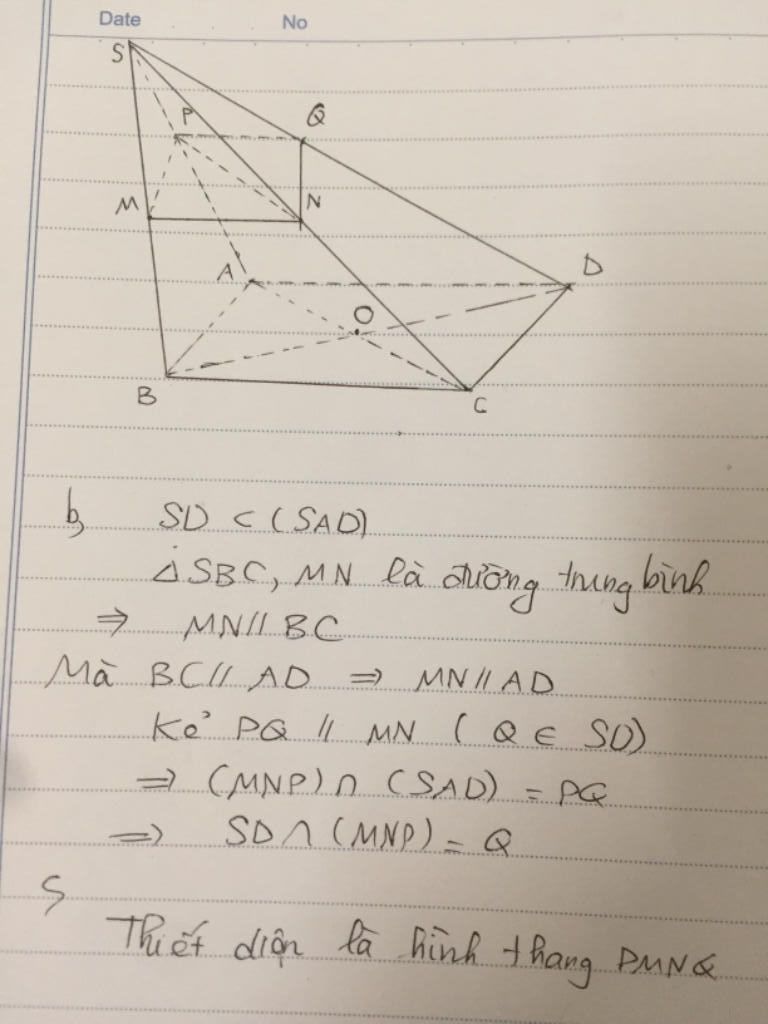 Date No
S
P Q
M N
A D
O
B C
b, SD ⊂ (SAD)
△SBC, MN là đường trung bình
⇒ MN // BC
Mà BC // AD ⇒ MN // AD
Kẻ PQ // MN ( Q ∈ SD)
⇒ (MNP) ∩ (SAD) = PQ
⇒ SD ∩ (MNP) = Q
Thiết diện là hình thang PMNQ